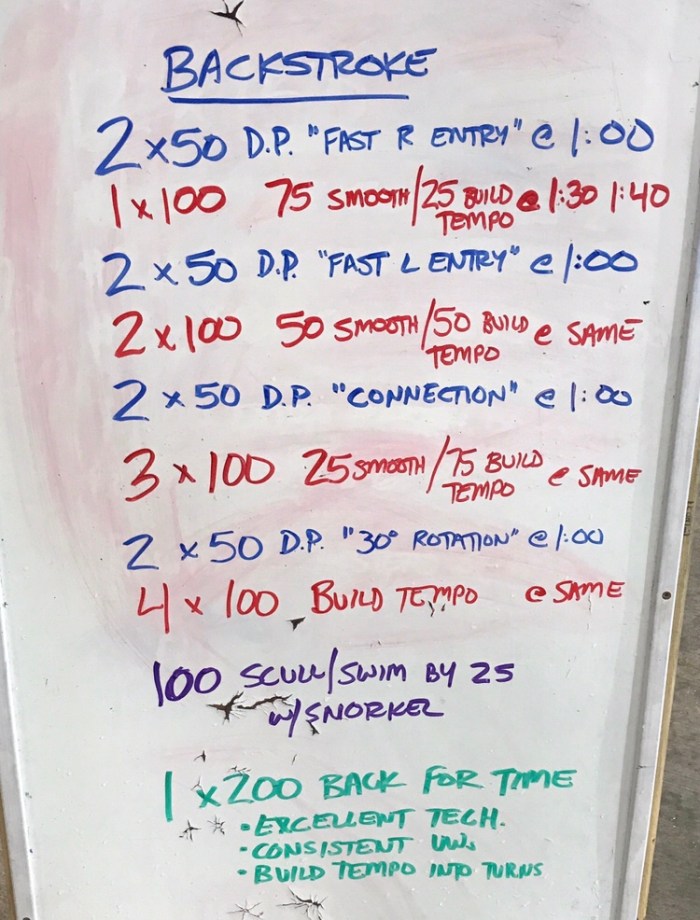 BACKSTROKE
2 x 50 D.P. "FAST R ENTRY" @ 1:00
1 x 100 75 SMOOTH/25 BUILD @ 1:30 1:40
TEMPO
2 x 50 D.P. "FAST L ENTRY" @ 1:00
2 x 100 50 SMOOTH/50 BUILD @ SAME
TEMPO
2 x 50 D.P. "CONNECTION" @ 1:00
3 x 100 25 SMOOTH/75 BUILD @ SAME
TEMPO
2 x 50 D.P. "30° ROTATION" @ 1:00
4 x 100 BUILD TEMPO @ SAME
100 SCULL/SWIM BY 25
W/SNORKEL
1 x 200 BACK FOR TIME
• EXCELLENT TECH.
• CONSISTENT UW.
• BUILD TEMPO INTO TURNS